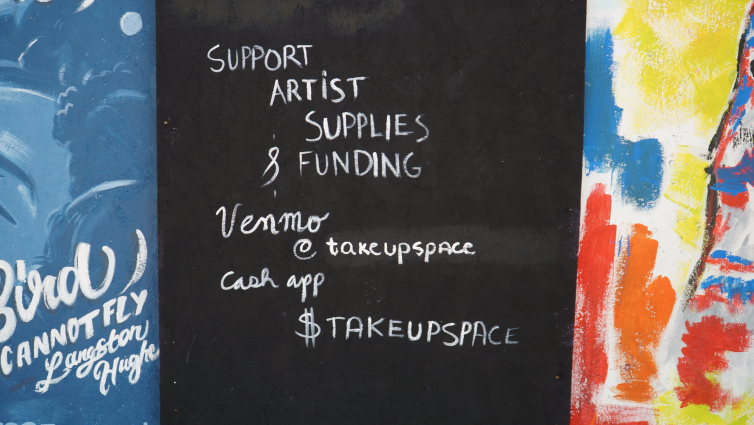 SUPPORT
ARTIST
SUPPLIES
& FUNDING
Venmo
@ takeupspace
Cash app
$TAKEUPSPACE
Bird
CANNOT FLY
Langston
Hughe